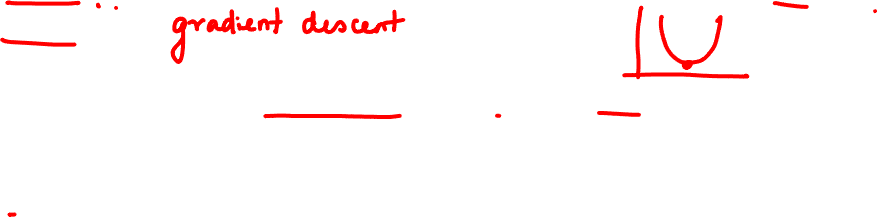 gradient descent